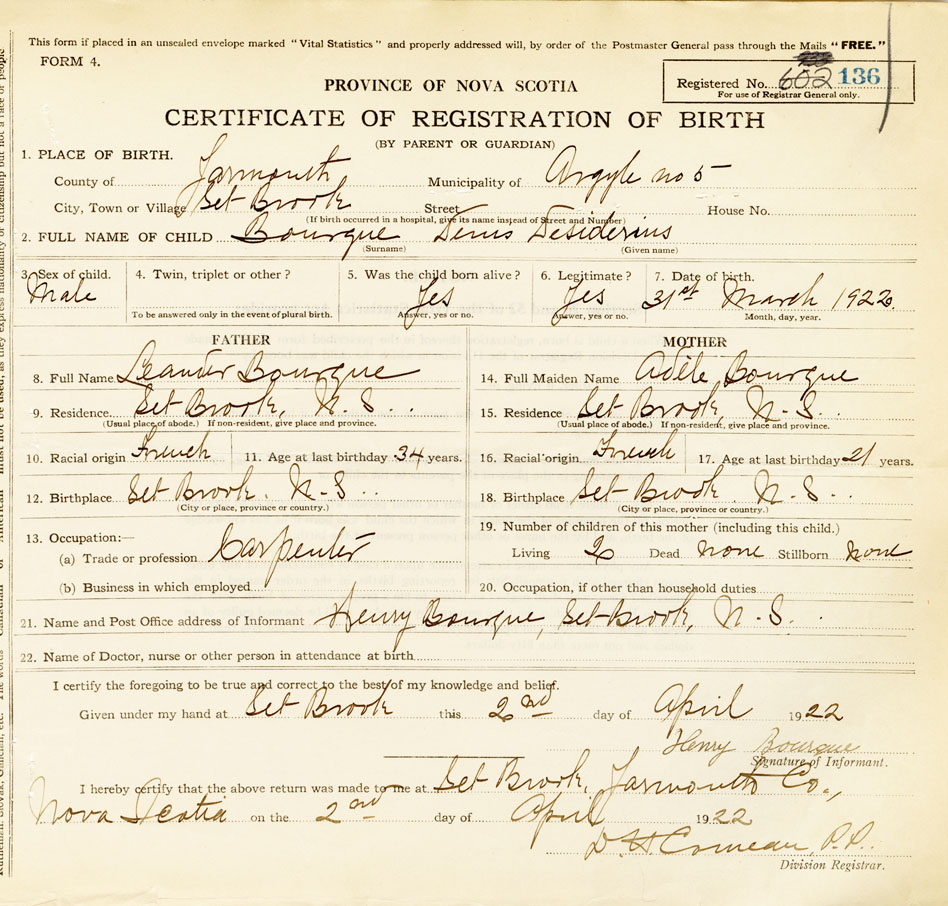 This form if placed in an unsealed envelope marked "Vital Statistics" and properly addressed will, by order of the Postmaster General pass through the Mails "FREE."
FORM 4.
Registered No. 602 136
For use of Registrar General only.
PROVINCE OF NOVA SCOTIA
CERTIFICATE OF REGISTRATION OF BIRTH
(BY PARENT OR GUARDIAN)
1. PLACE OF BIRTH.
County of Yarmouth Municipality of Argyle no 5
City, Town or Village Sel Brook Street House No.
(If birth occurred in a hospital, give its name instead of Street and Number)
2. FULL NAME OF CHILD Bourque Denis Desiderius
(Surname) (Given name)
3. Sex of child. 4. Twin, triplet or other? 5. Was the child born alive? 6. Legitimate? 7. Date of birth.
Male Yes Yes 31st March 1922.
To be answered only in the event of plural birth. Answer, yes or no. Answer, yes or no. Month, day, year.
FATHER MOTHER
8. Full Name Leander Bourque 14. Full Maiden Name Adèle Bourque
9. Residence Sel Brook, N.S. 15. Residence Sel Brook, N-S.
(Usual place of abode.) If non-resident, give place and province. (Usual place of abode.) If non-resident, give place and province.
10. Racial origin French 11. Age at last birthday 34 years. 16. Racial origin French 17. Age at last birthday 21 years.
12. Birthplace Sel Brook. N-S 18. Birthplace Sel-Brook. N.S.
(City or place, province or country.) (City or place, province or country.)
13. Occupation:— 19. Number of children of this mother (including this child.)
(a) Trade or profession Carpenter Living 2 Dead none Stillborn none
(b) Business in which employed 20. Occupation, if other than household duties
21. Name and Post Office address of Informant Henry Bourque, Sel-Brook, N-S.
22. Name of Doctor, nurse or other person in attendance at birth
I certify the foregoing to be true and correct to the best of my knowledge and belief.
Given under my hand at Sel Brook this 2nd day of April 1922
Henry Bourque
Signature of Informant.
I hereby certify that the above return was made to me at Sel Brook, Yarmouth Co.,
Nova Scotia on the 2nd day of April 1922
D. H. Comeau, P.P.
Division Registrar.